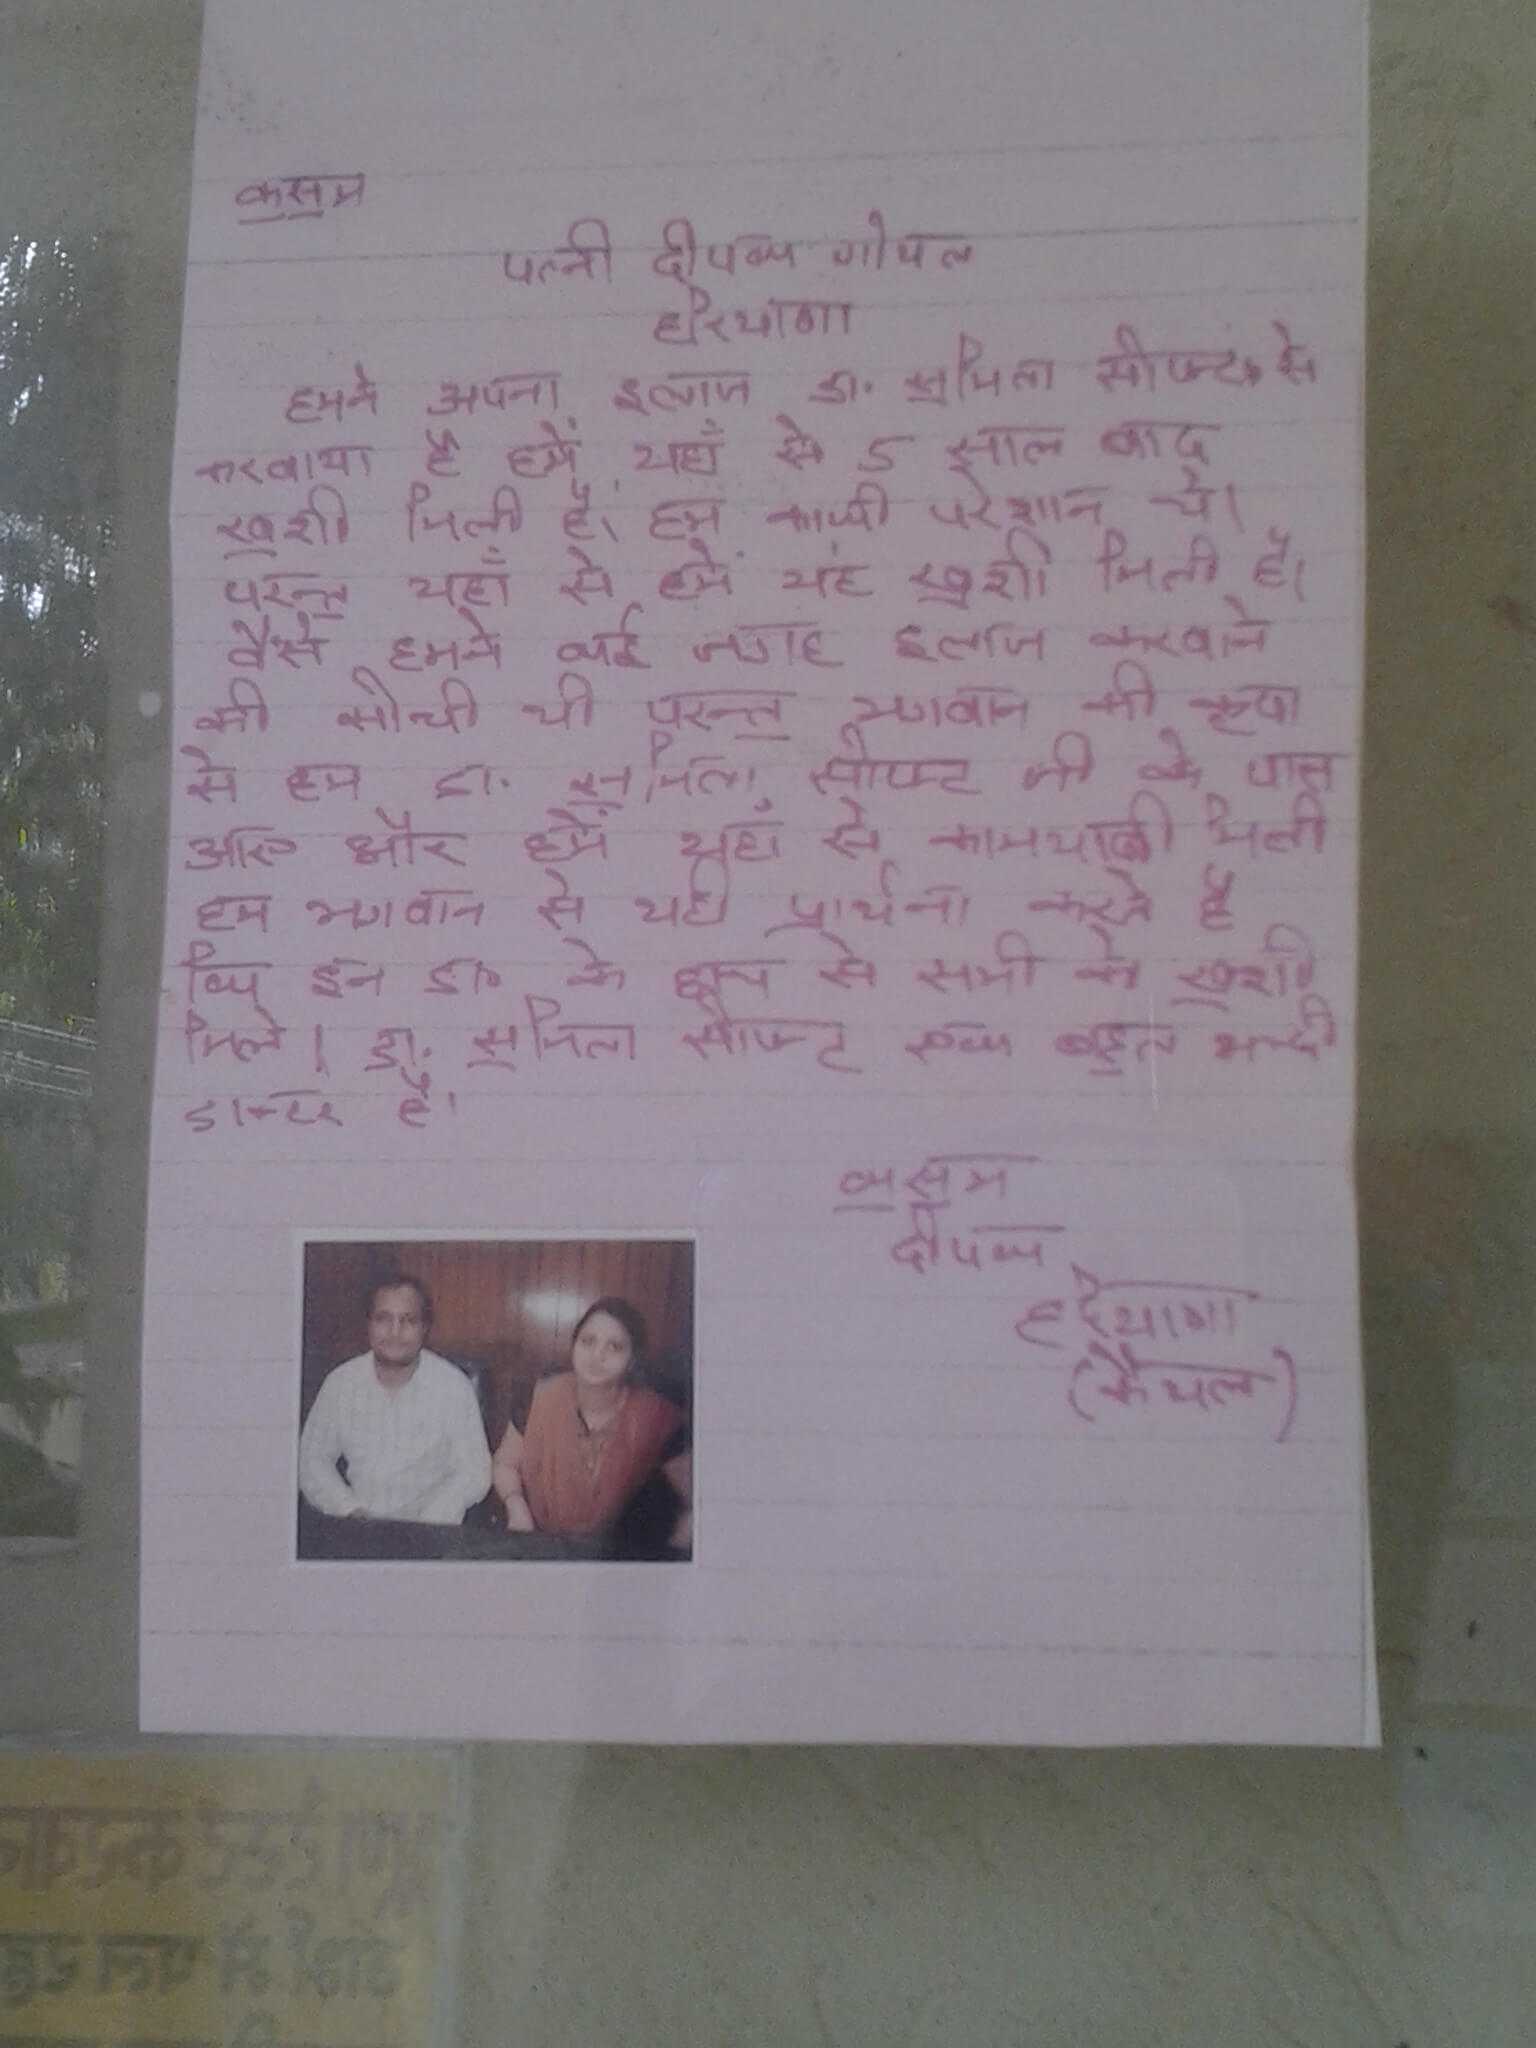 कुसुम
पत्नी दीपक गोयल
हरियाणा
हमने अपना इलाज डा. सुमिता सोफ्ट से
करवाया है हमें यहाँ से 5 साल बाद
खुशी मिली है। हम काफी परेशान थे।
परन्तु यहाँ से हमें यह खुशी मिली है।
वैसे हमने कई जगह इलाज करवाने
की सोची थी परन्तु भगवान की कृपा
से हम डा. सुमिता सोफ्ट जी के पास
आए और हमें यहाँ से कामयाबी मिली
हम भगवान से यही प्रार्थना करते हैं
कि इन डा० के हाथ से सभी को खुशी
मिले। डा. सुमिता सोफ्ट एक बहुत अच्छी
डाक्टर है।
कुसुम
दीपक
हरियाणा
(कैथल)